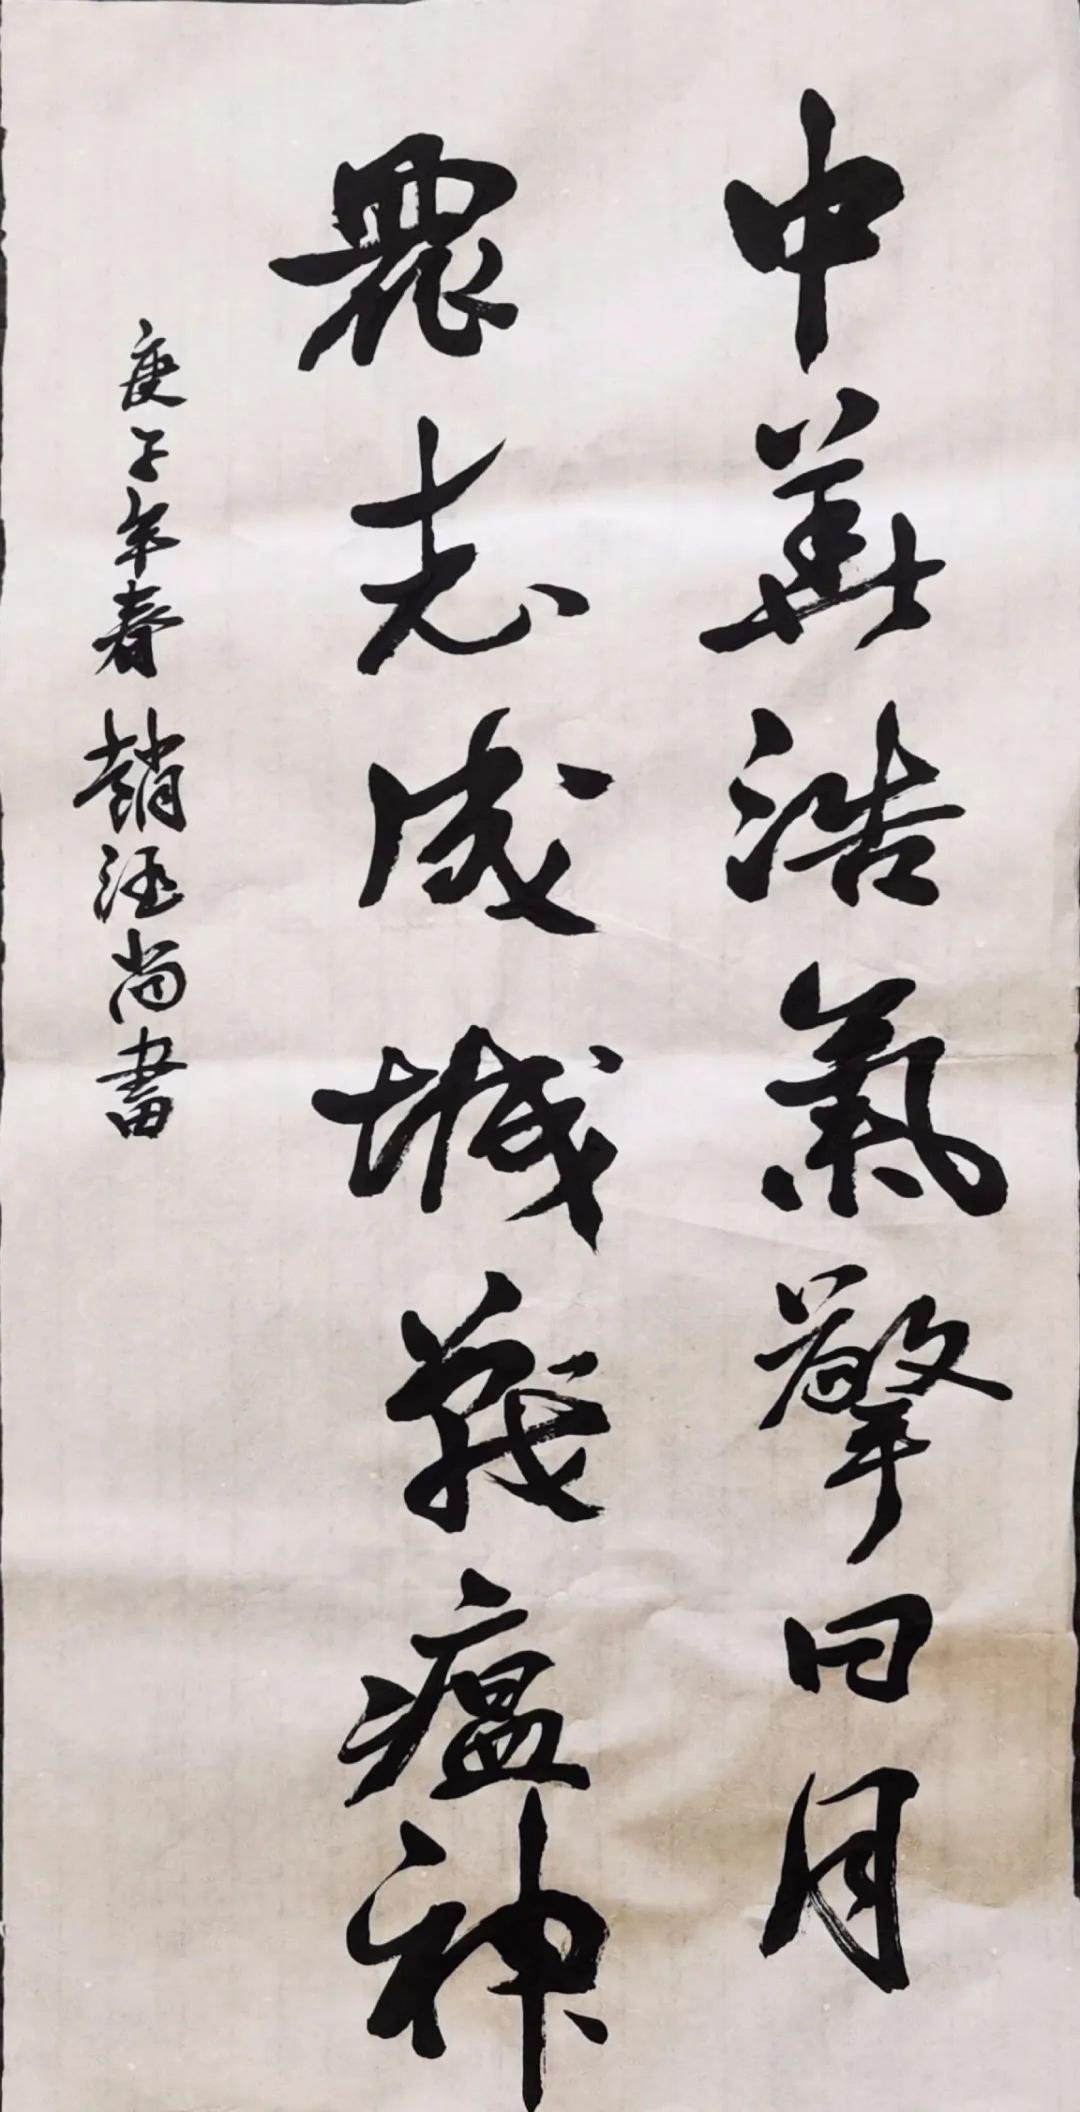 中華浩氣擎日月
眾志成城戰瘟神
庚子年春 趙涇尚書